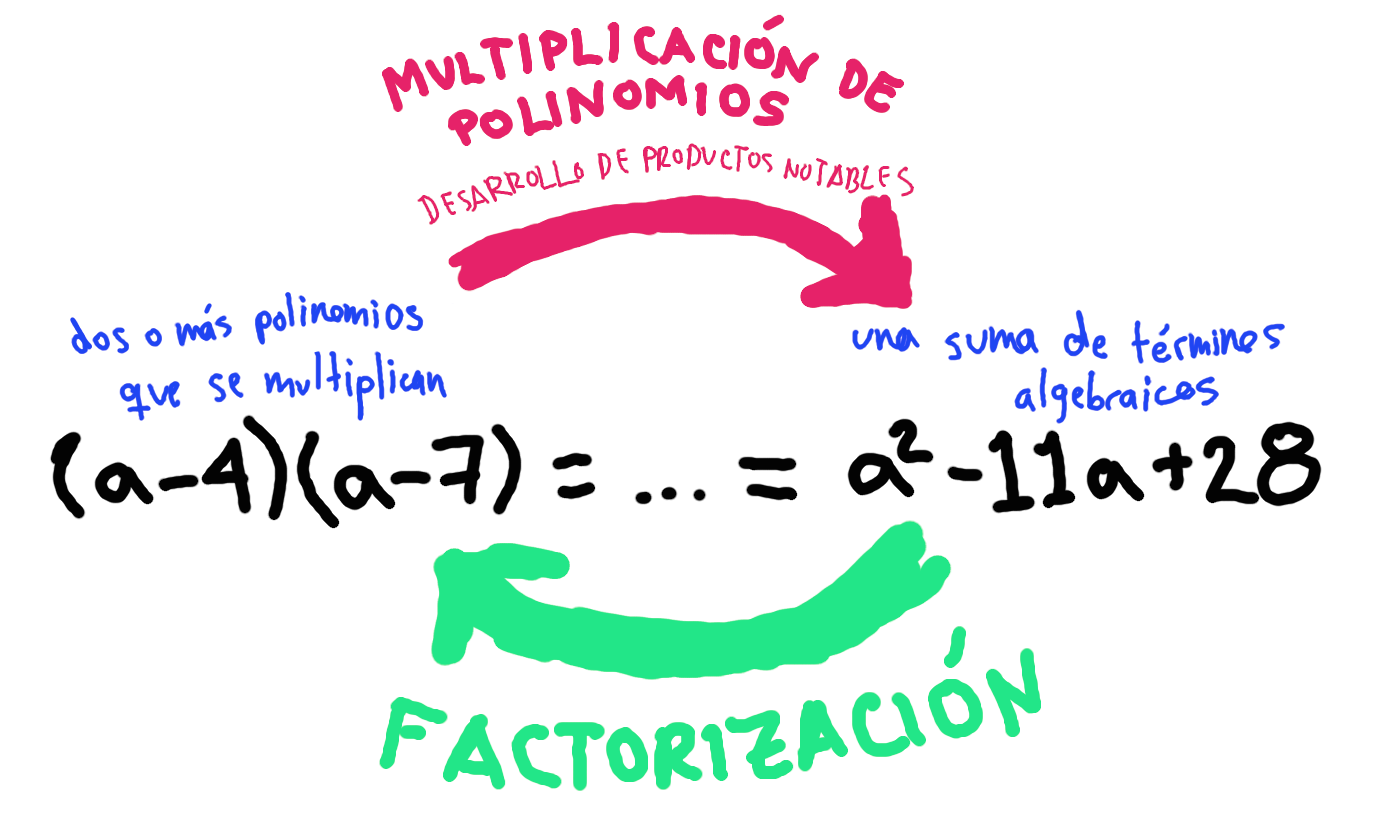 MULTIPLICACIÓN DE
POLINOMIOS
DESARROLLO DE PRODUCTOS NOTABLES
dos o más polinomios
que se multiplican
una suma de términos
algebraicos
(a-4)(a-7) = ... = a²-11a+28
FACTORIZACIÓN